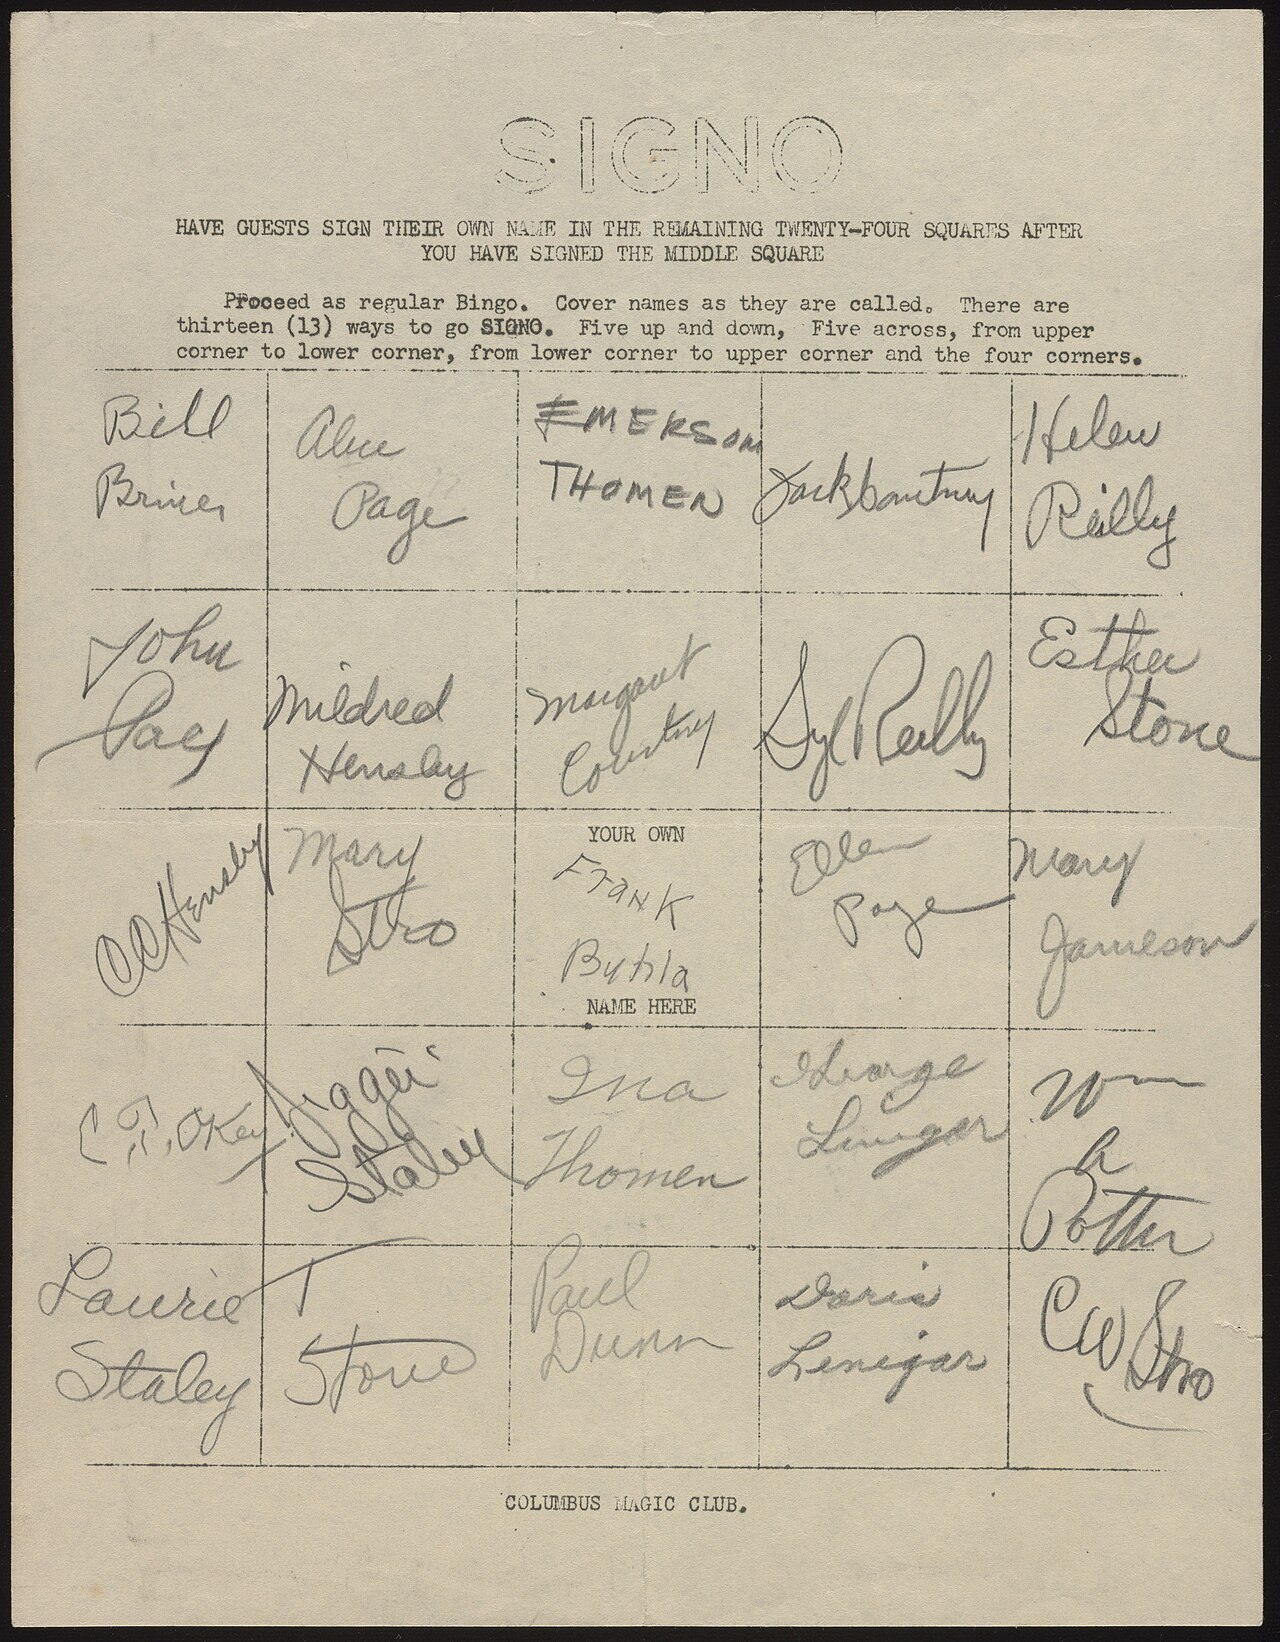 SIGNO
HAVE GUESTS SIGN THEIR OWN NAME IN THE REMAINING TWENTY-FOUR SQUARES AFTER
YOU HAVE SIGNED THE MIDDLE SQUARE
Proceed as regular Bingo. Cover names as they are called. There are
thirteen (13) ways to go SIGNO. Five up and down, Five across, from upper
corner to lower corner, from lower corner to upper corner and the four corners.
Bill
Briner
Page
EMERSON
THOMEN
Jack Courtney
Helen
Reilly
John
Mildred
Hensley
Margaret
Courtney
Syl Reilly
Esther
Stone
CC Hensley
Mary
Stro
YOUR OWN
Frank
NAME HERE
Ellen
Page
Mary
Jameson
C.T. Okey
Staley
Ina
Thomen
George
Lenigar
Wm
A
Potter
Laurie
Staley
T
Stone
Paul
Dunn
Doris
Lenigar
CW Stro
COLUMBUS MAGIC CLUB.